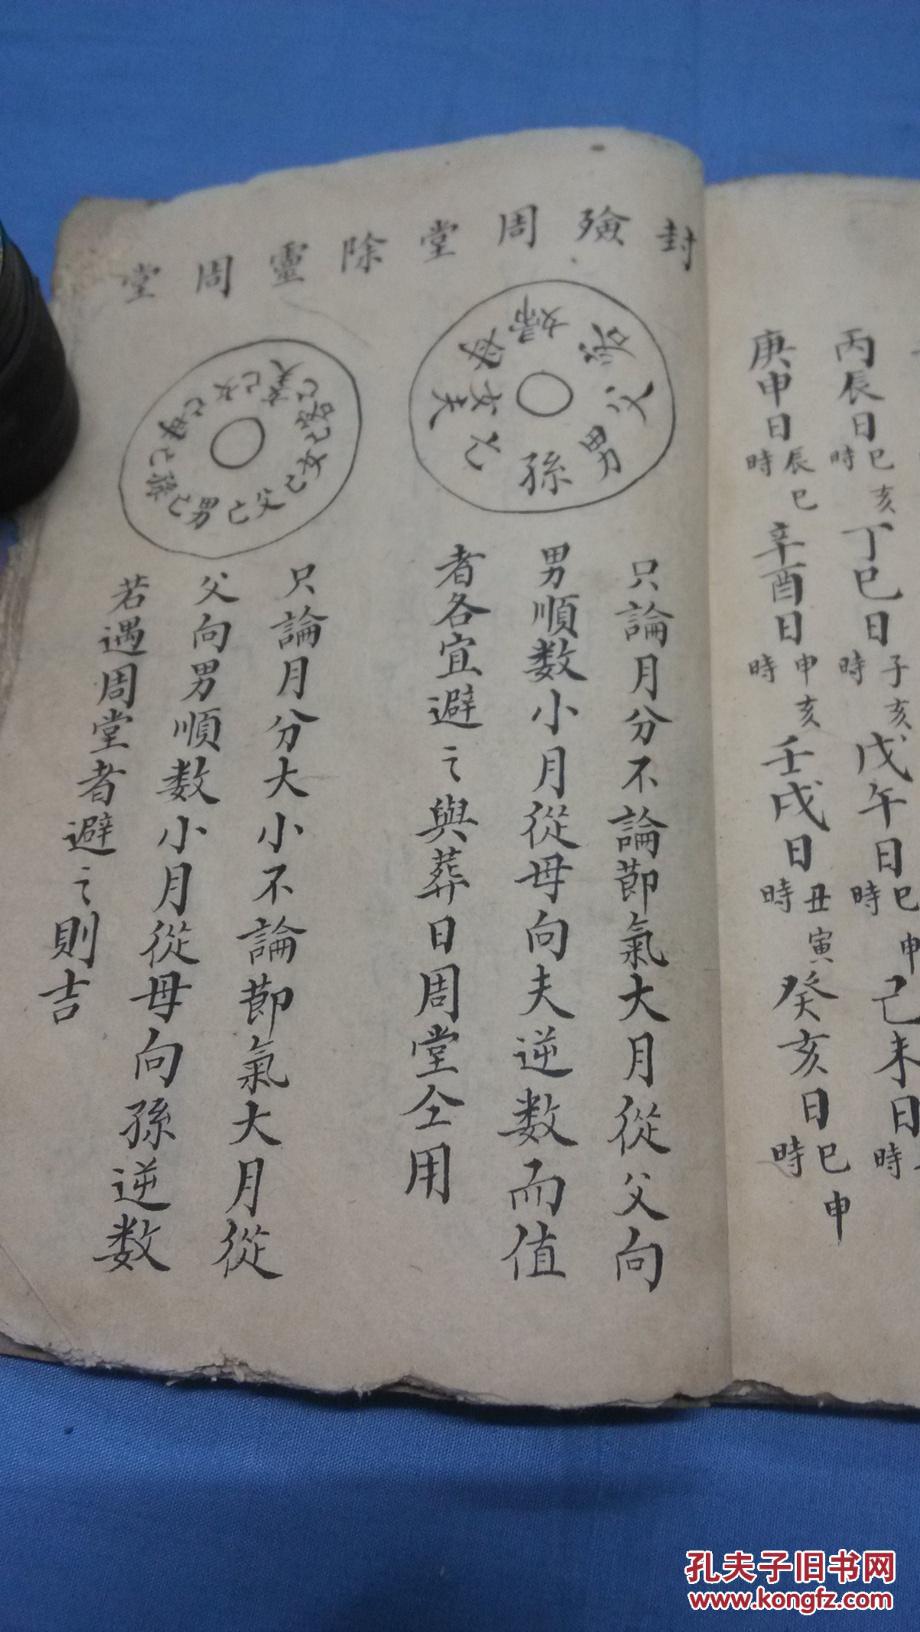 丙辰日 巳亥時 丁巳日 子亥時 戊午日 巳申時 己未日 時
庚申日 辰巳時 辛酉日 申亥時 壬戌日 丑寅時 癸亥日 巳申時
封殮周堂除靈周堂
婦 客 父 男 孫 亡 女夫 母
只論月分不論節氣大月從父向
男順数小月從母向夫逆数而值
者各宜避之與葬日周堂仝用
父 男 孫 母 女 客 亡
只論月分大小不論節氣大月從
父向男順数小月從母向孫逆数
若遇周堂者避之則吉
孔夫子旧书网
www.kongfz.com